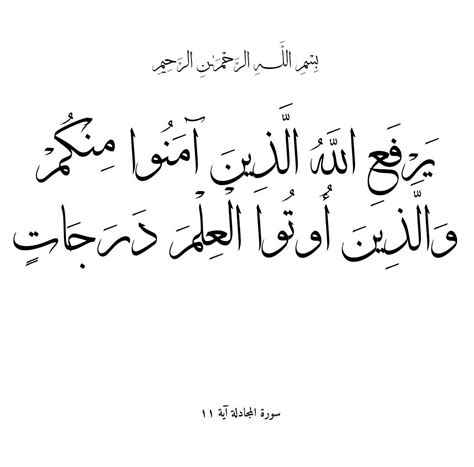 بِسْمِ اللَّهِ الرَّحْمَٰنِ الرَّحِيمِ
يَرْفَعِ اللَّهُ الَّذِينَ آمَنُوا مِنكُمْ
وَالَّذِينَ أُوتُوا الْعِلْمَ دَرَجَاتٍ
سورة المجادلة آية ١١